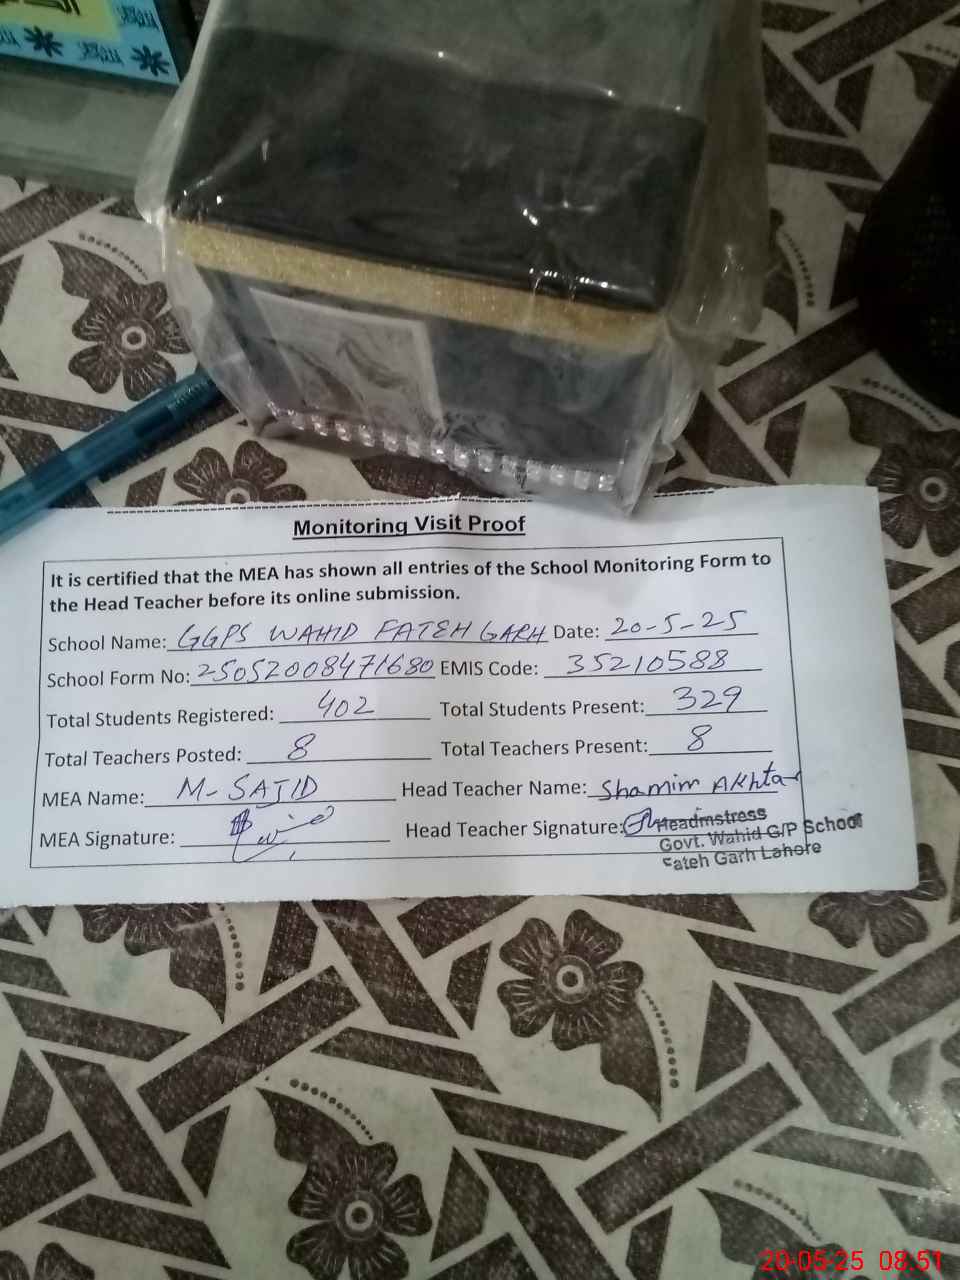 Monitoring Visit Proof
It is certified that the MEA has shown all entries of the School Monitoring Form to
the Head Teacher before its online submission.
School Name: GGPS WAHID FATEH GARH Date: 20-5-25
School Form No: 25052008471680 EMIS Code: 35210588
Total Students Registered: 402 Total Students Present: 329
Total Teachers Posted: 8 Total Teachers Present: 8
MEA Name: M-SAJID Head Teacher Name: Shamim Akhtar
MEA Signature: Head Teacher Signature: Headmstress
Govt. Wahid G/P School
Fateh Garh Lahore
20-05-25 08:51